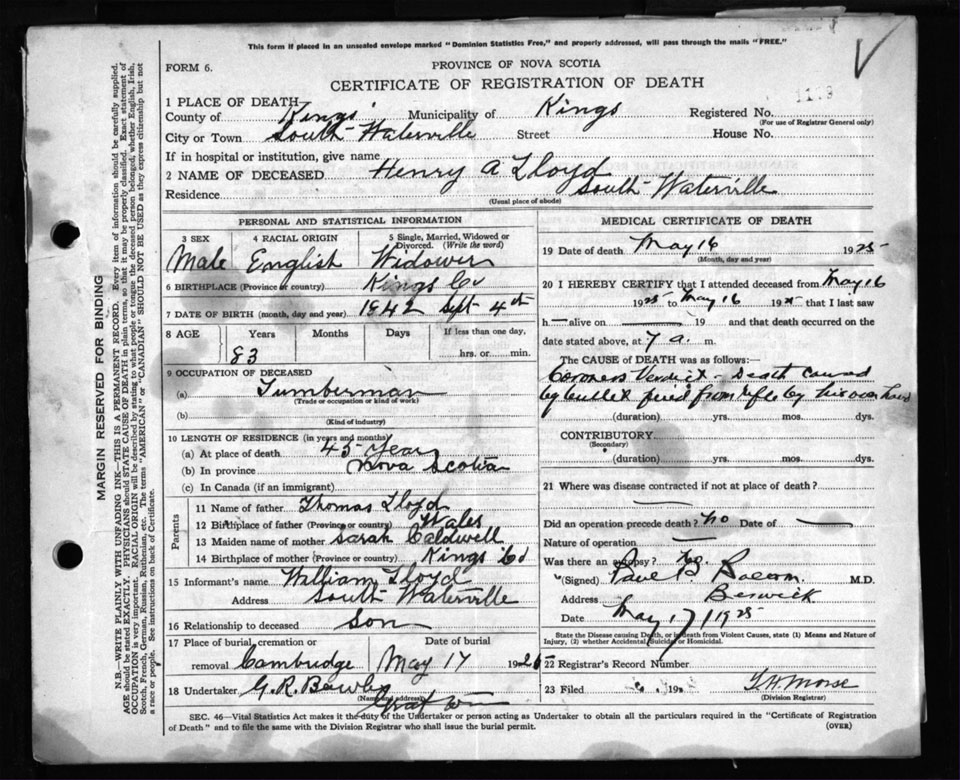 This form if placed in an unsealed envelope marked "Dominion Statistics Free," and properly addressed, will pass through the mails "FREE."
FORM 6.
PROVINCE OF NOVA SCOTIA
CERTIFICATE OF REGISTRATION OF DEATH
1 PLACE OF DEATH
County of Kings Municipality of Kings Registered No.
(For use of Registrar General only)
City or Town South Waterville Street House No.
If in hospital or institution, give name
2 NAME OF DECEASED Henry A Lloyd
Residence South Waterville
(Usual place of abode)
PERSONAL AND STATISTICAL INFORMATION
3 SEX 4 RACIAL ORIGIN 5 Single, Married, Widowed or Divorced. (Write the word)
Male English Widower
6 BIRTHPLACE (Province or country) Kings Co
7 DATE OF BIRTH (month, day and year) 1842 Sept 4th
8 AGE Years Months Days If less than one day,
83 hrs. or min.
9 OCCUPATION OF DECEASED
(a) Lumberman
(Trade or occupation or kind of work)
(b)
(Kind of industry)
10 LENGTH OF RESIDENCE (in years and months)
(a) At place of death 45 Years
(b) In province Nova Scotia
(c) In Canada (if an immigrant)
Parents
11 Name of father Thomas Lloyd
12 Birthplace of father (Province or country) Wales
13 Maiden name of mother Sarah Caldwell
14 Birthplace of mother (Province or country) Kings Co
15 Informant's name William Lloyd
Address South Waterville
16 Relationship to deceased Son
17 Place of burial, cremation or Date of burial
removal Cambridge May 17 1925
18 Undertaker G. R.
(Name and address)
MEDICAL CERTIFICATE OF DEATH
19 Date of death May 16 1925
(Month, day and year)
20 I HEREBY CERTIFY that I attended deceased from May 16
1925 to May 16 192 that I last saw
h— alive on 19 and that death occurred on the
date stated above, at 7 a. m.
The CAUSE of DEATH was as follows:—
Coroners Verdict - Death caused
by bullet fired from rifle by his own hand
(duration) yrs. mos. dys.
CONTRIBUTORY
(Secondary)
(duration) yrs. mos. dys.
21 Where was disease contracted if not at place of death?
Did an operation precede death? No Date of
Nature of operation
Was there an autopsy? No.
(Signed) Paul B M.D.
Address Berwick
Date May 17/1925
State the Disease causing Death, or in death from Violent Causes, state (1) Means and Nature of
Injury, (2) whether Accidental, Suicidal or Homicidal.
22 Registrar's Record Number
23 Filed 192
Morse
(Division Registrar)
SEC. 46—Vital Statistics Act makes it the duty of the Undertaker or person acting as Undertaker to obtain all the particulars required in the "Certificate of Registration
of Death" and to file the same with the Division Registrar who shall issue the burial permit. (OVER)
MARGIN RESERVED FOR BINDING
N.B.—WRITE PLAINLY WITH UNFADING INK—THIS IS A PERMANENT RECORD. Every item of information should be carefully supplied.
AGE should be stated EXACTLY. PHYSICIANS should STATE CAUSE OF DEATH in plain terms, so that it may be properly classified. Exact statement of
OCCUPATION is very important. RACIAL ORIGIN will be described by stating to what people or tongue the deceased person belonged, whether English, Irish,
Scotch, French, German, Russian, Ruthenian, etc. The terms "AMERICAN" or "CANADIAN" SHOULD NOT BE USED as they express citizenship but not
a race or people. See instructions on back of Certificate.